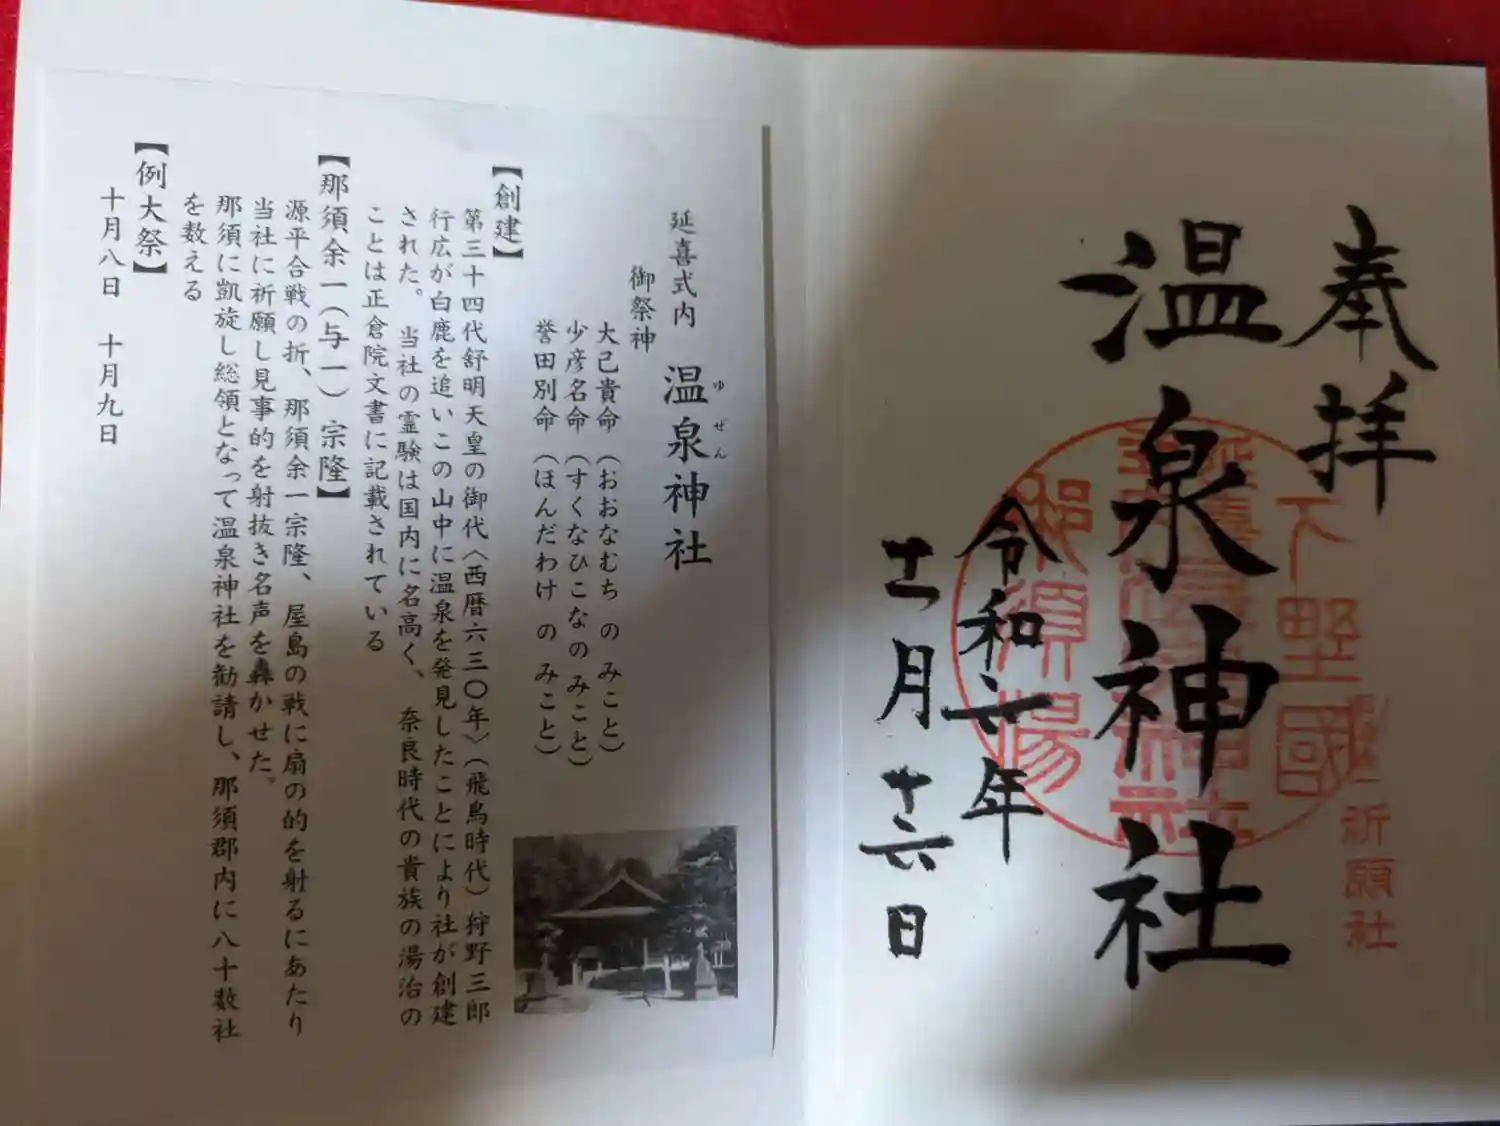 奉拝
温泉神社
令和六年
十一月十六日
下野國
那須湯
祈願社
延喜式内 温泉神社
ゆぜん
御祭神
大己貴命(おおなむち のみこと)
少彦名命(すくなひこなのみこと)
誉田別命(ほんだわけ のみこと)
【創建】
第三十四代舒明天皇の御代〈西暦六三〇年〉(飛鳥時代)狩野三郎
行広が白鹿を追いこの山中に温泉を発見したことにより社が創建
された。 当社の霊験は国内に名高く、 奈良時代の貴族の湯治の
ことは正倉院文書に記載されている
【那須余一(与一) 宗隆】
源平合戦の折、 那須余一宗隆、 屋島の戦に扇の的を射るにあたり
当社に祈願し見事的を射抜き名声を轟かせた。
那須に凱旋し総領となって温泉神社を勧請し、那須郡内に八十数社
を数える
【例大祭】
十月八日 十月九日